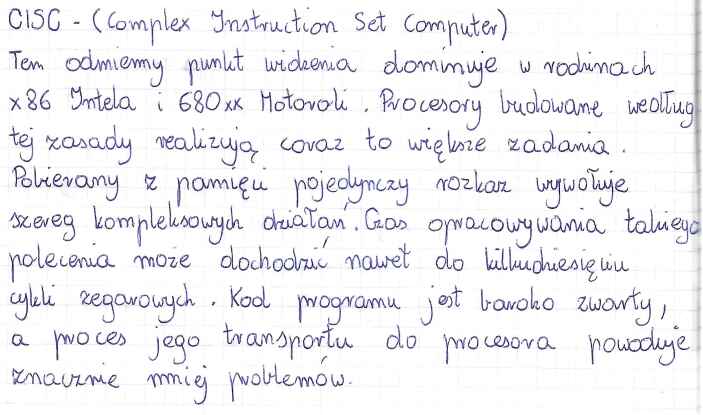 CISC - (Complex Instruction Set Computer)
Ten odmienny punkt widzenia dominuje w rodzinach
x86 Intela i 680xx Motoroli. Procesory budowane według
tej zasady realizują coraz to większe zadania.
Pobierany z pamięci pojedynczy rozkaz wywołuje
szereg kompleksowych działań. Czas opracowywania takiego
polecenia może dochodzić nawet do kilkudziesięciu
cykli zegarowych. Kod programu jest bardzo zwarty,
a proces jego transportu do procesora powoduje
znacznie mniej problemów.